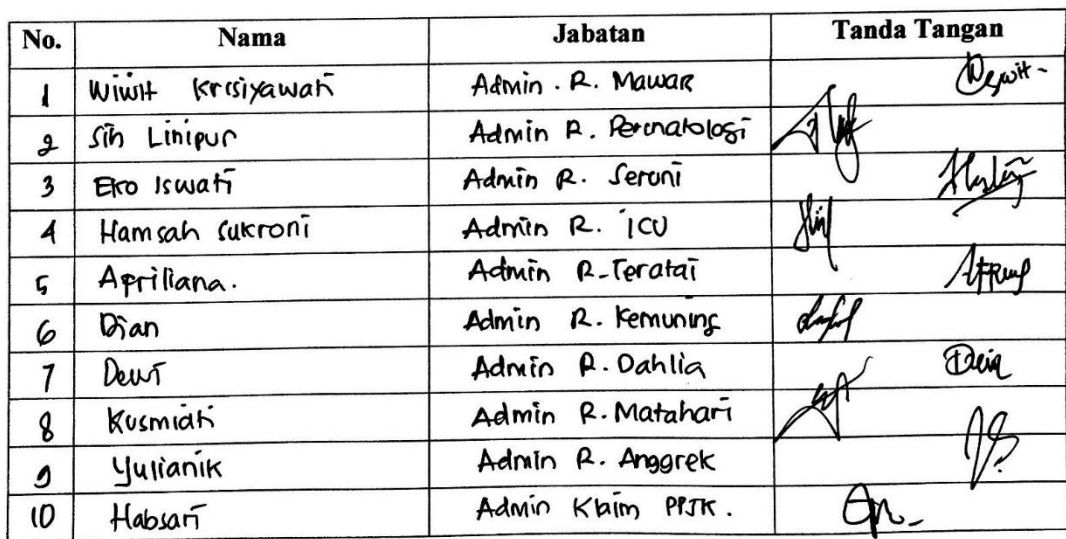 No. Nama Jabatan Tanda Tangan
1 Wiwit Krisiyawati Admin. R. Mawar
2 Sih Linipur Admin R. Perinatologi
3 Eko Iswati Admin R. Seruni
4 Hamsah Sukroni Admin R. ICU
5 Apriliana. Admin R-Teratai
6 Dian Admin R. Kemuning
7 Dewi Admin R. Dahlia
8 Kusmiati Admin R. Matahari
9 Yulianik Admin R. Anggrek
10 Habsari Admin Klaim PPJK.